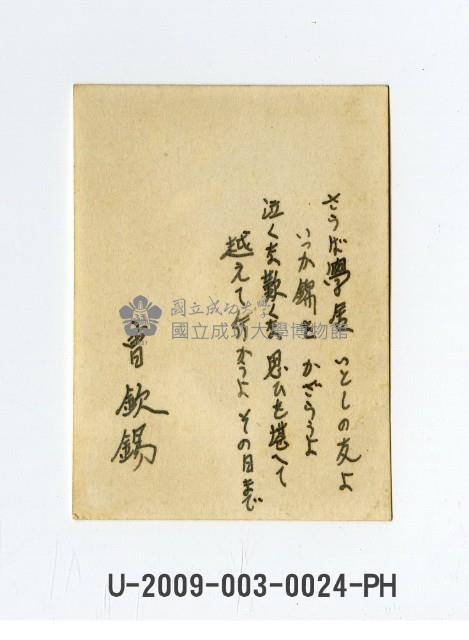 さらば學居 いとしの友よ
いつか錦を かざらうよ
泣くな歎くな 思ひを堪へて
越えて行かうよ その日まで
曾欽錫
國立成功大學
國立成功大學博物館
U-2009-003-0024-PH